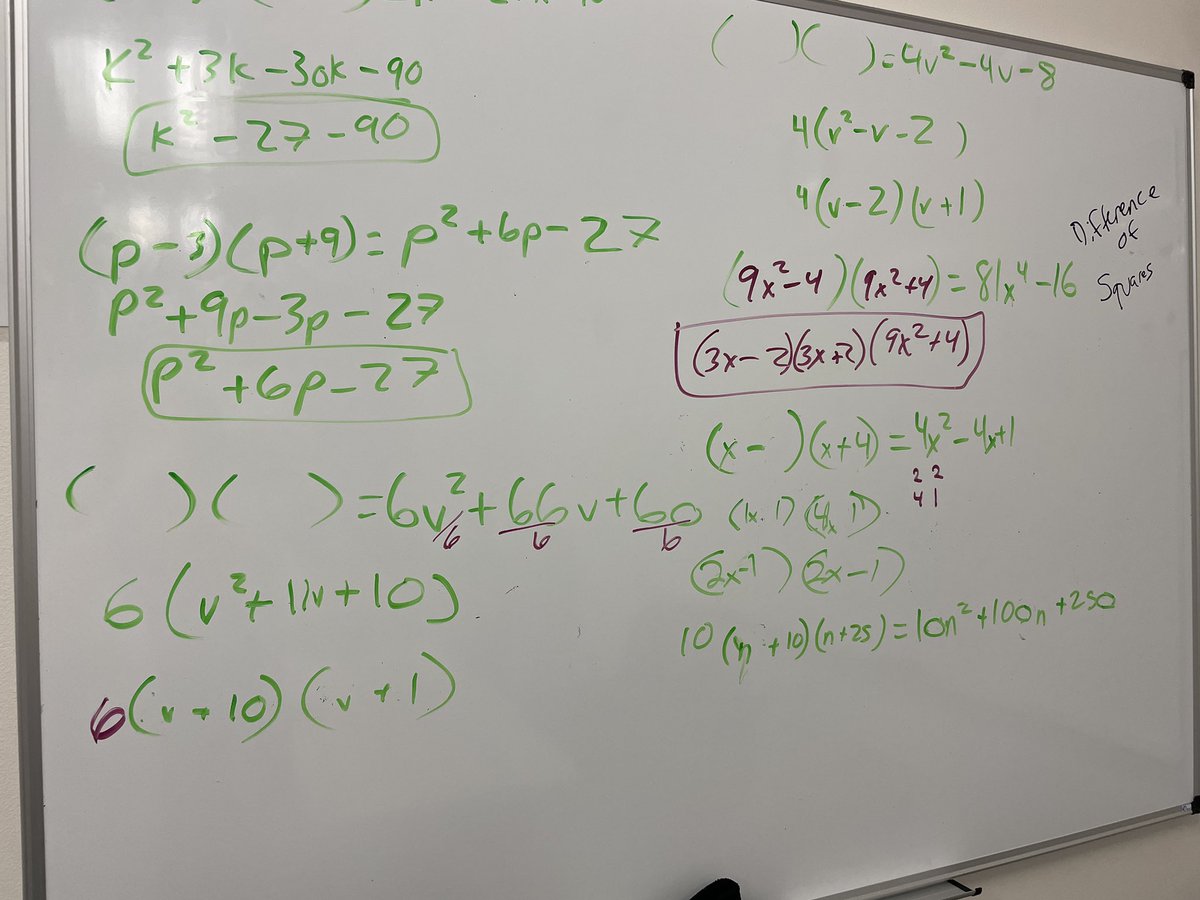 k² + 3k - 30k - 90
k² - 27 - 90
(p - 3)(p + 9) = p² + 6p - 27
p² + 9p - 3p - 27
p² + 6p - 27
( )( ) = 6v²/6 + 66v/6 + 60/6
6(v² + 11v + 10)
6(v + 10)(v + 1)
( )( ) = 4v² - 4v - 8
4(v² - v - 2 )
4(v - 2)(v + 1)
(9x² - 4)(9x² + 4) = 81x⁴ - 16
Difference
of
Squares
(3x - 2)(3x + 2)(9x² + 4)
(x - )(x + 4) = 4x² - 4x + 1
2 2
4 1
(1x 1)(4x 1)
(2x - 1)(2x - 1)
10(n + 10)(n + 25) = 10n² + 100n + 250